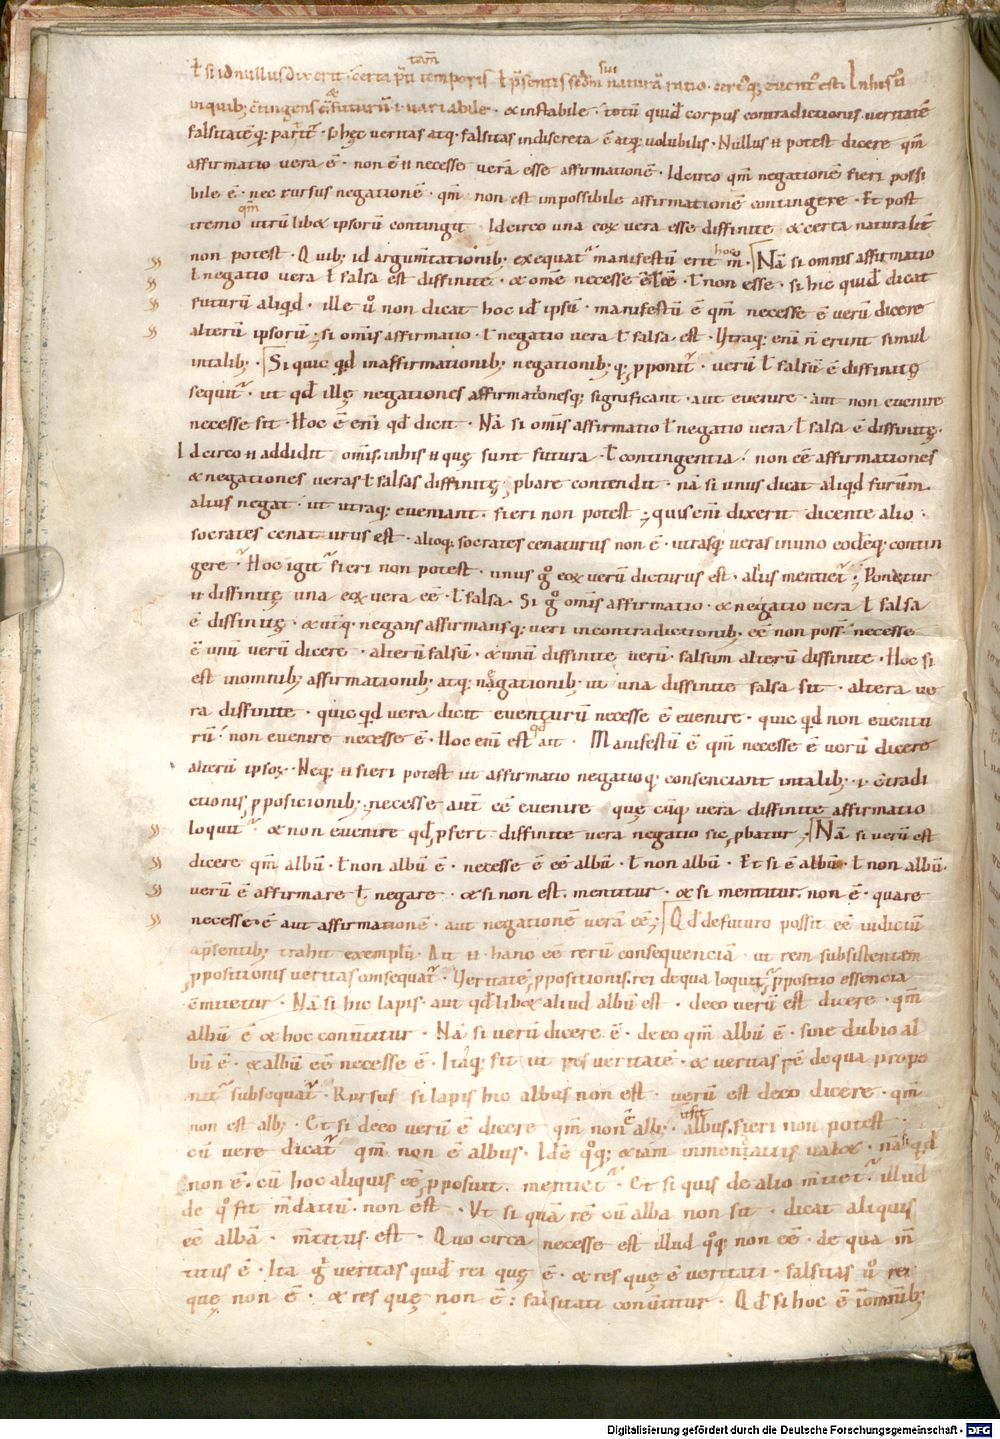 ł si id nullus dixerit · certa p̄ tam̄ temporis ł p̄sentis sedm̄ sui naturā ratio · certeq; eventꝰ est. In his ũ
in quib; c̄tingens & ē futurū · i · variabile · & instabile · totū quid̄ corpus contradictionis veritatē
falsitatēq; partiť · S; hęc veritas atq; falsitas indiscreta ē atq; volubilis · Nullus n̄ potest dicere qm̄
affirmatio vera ē · non ē n̄ necesse verā esse affirmationē · Idcirco qm̄ negationē fieri possi
bile ē · nec rursus negationē · qm̄ non est inpossibile affirmationē contingere · Et post
tremo qm̄ utrū libet ipsorū contingit · Idcirco una eoꝝ vera esse diffinite & certa naturalit̄
non potest · Quib; id argum̄tationib; exequať manifestū erit hoc m̊ · Nā si omnis affirmatio
ł negatio vera ł falsa est diffinite · & om̄e necesse ē ł eē · ł non esse · si hic quid̄ dicat
futurū aliqd · ille ũ non dicat hoc id̄ ipsū · manifestū ē qm̄ necesse ē verū dicere
alterū ipsorū ; si om̄is affirmatio · ł negatio vera ł falsa est · Utraq; eni n̄ erunt simul
in talib; · Si quic qd in affirmationib; negationib; q; p̱poniť · verū ł falsū ē diffinitę
sequiť · ut qd̄ illę negationes affirmationesq; significant · aut evenire · aut non evenire
necesse sit · Hoc ē eni qd̄ dicit · Nā si om̄is affirmatio ł negatio vera ł falsa ē diffinitę ·
Idcirco n̄ addidit om̄is · in his n̄ quę sunt futura · ł contingentia · non eē affirmationes
& negationes veras ł falsas diffinitę ; p̱bare contendit · nā si unus dicat aliqd furūm ·
alius negat · ut utraq; eveniant · fieri non potest ; quis eni dixerit dicente alio ·
socrates cenaturus est · alioq; socrates cenaturus non ē · utrasq; veras in uno eodēq; contin
gere · Hoc igiť fieri non potest · unus g̊ eoꝝ verū dicturus est · alius mentieť ; Ponetur
n̄ diffinitę una eoꝝ vera eē · ł falsa · Si g̊ om̄is affirmatio · & negatio vera ł falsa
ē diffinitę · & utq̄ · negans affirmansq; veri in contradictionib; eē non poss̄ · necesse
ē unū verū dicere · alterū falsū · & unū diffinite verū · falsum alterū diffinite · Hoc si
est in omnib; affirmationib; atq; nægationib; ut una diffinite falsa sit · altera ve
ra diffinite · quic qd vera dicit eventurū necesse ē evenire · quic qd non eventu
rū · non evenire necesse ē · Hoc eni est qd̄ ait · Manifestū ē qm̄ necesse ē verū dicere
alterū ipsoꝝ · Neq; n̄ fieri potest ut affirmatio negatioq; consenciant in talib; · i · c̄tradi
ctionis p̱posicionib; · necesse aut̄ eē evenire quę cūq; vera diffinite affirmatio
loquiť · & non evenire qd̄ p̱fert diffinite vera negatio sic p̱batur ; Nā si verū est
dicere qm̄ albū · ł non albū ē · necesse ē eē albū · ł non albū · Et si ē albū · ł non albū ·
verū ē affirmare ł negare · & si non est · mentitur · & si mentitur · non ē · quare
necesse · ē aut affirmationē · aut negationē verā eē ; Qd̄ de futuro possit eē iudiciū
a p̄sentib; trahit exemplū · Ait n̄ · hanc eē rerū consequenciā · ut rem subsistentem
p̱positionis veritas consequať · Veritatē p̱positionis · rei de qua loquiť p̱positio essencia
c̄mitetur · Nā si hic lapis · aut qd̄ libet aliud albū est · de eo verū est dicere · qm̄
albū ē & hoc conv̄titur · Nā si verū dicere ē · de eo qm̄ albū ē · sine dubio al
bū ē · & albū eē necesse ē · Itaq; fit ut res veritatē · & veritas rē de qua propo
niť subsequať · Rursus si lapis hic albus non est · verū est de eo dicere · qm̄
non est alb; · Et si de eo verū ē dicere qm̄ non ē alb; · ut sit albus · fieri non potest ·
cū vere dicať qm̄ non ē albus · Idē q̊q; & iam in mentientis valet · nā si qd
non ē · cū hoc aliquis eē p̱posuit · mentieť · Et si quis de alio m̄tieť · illud
de q̊ fit m̄daciū · non est · Ut si quā rē cū alba non sit · dicat aliquis
eē albā · m̄titus est · Quo circa necesse est illud q̊q; non eē · de qua m̄
titus ē · Ita g̊ veritas quid̄ rei quę ē · & res quę ē veritati · falsitas ũ rei
quę non ē · & res quę non ē : falsitati conv̄titur · Qd̄ si hoc ē ī omnib;
Digitalisierung gefördert durch die Deutsche Forschungsgemeinschaft - DFG